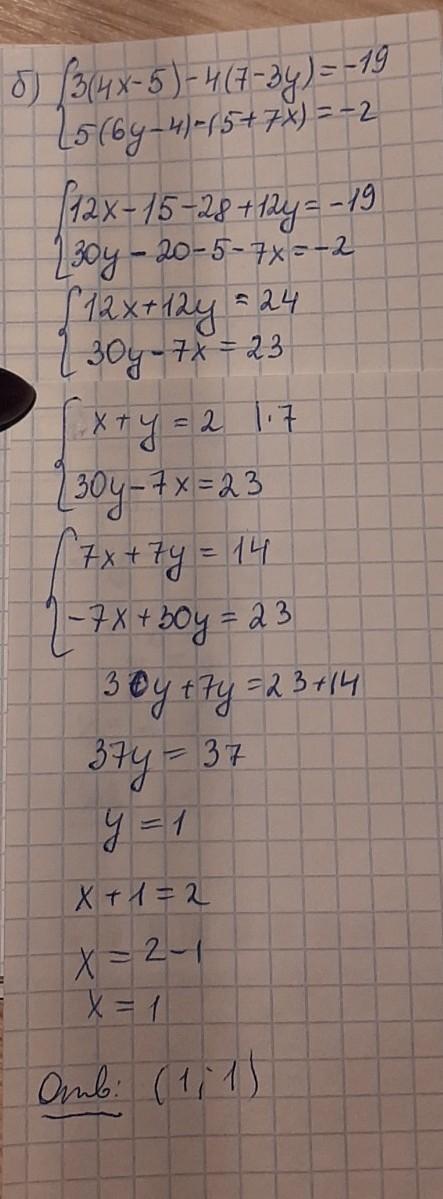 б) {3(4x-5)-4(7-3y)=-19
{5(6y-4)-(5+7x)=-2
{12x-15-28+12y=-19
{30y-20-5-7x=-2
{12x+12y=24
{30y-7x=23
{x+y=2 |·7
{30y-7x=23
{7x+7y=14
{-7x+30y=23
30y+7y=23+14
37y=37
y=1
x+1=2
x=2-1
x=1
Отв: (1;1)